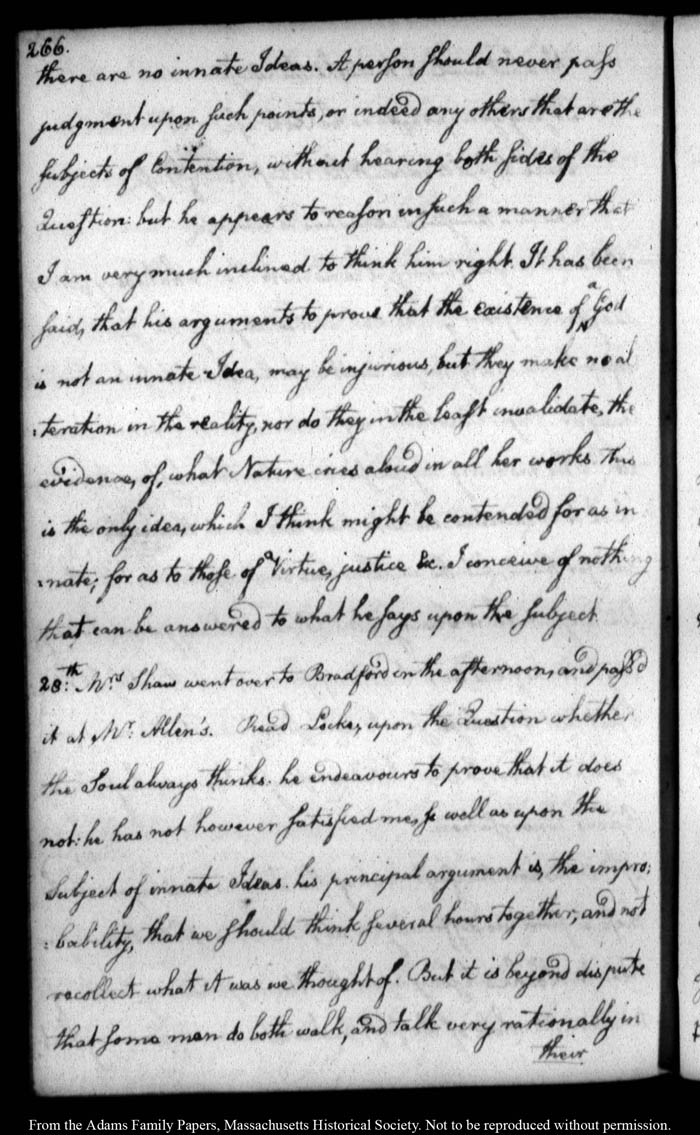 266.
there are no innate Ideas. A person should never pass
judgment upon such points, or indeed any others that are the
subjects of Contention, without hearing both sides of the
Question: but he appears to reason in such a manner that
I am very much inclined to think him right. It has been
said, that his arguments to prove that the existence of a God
is not an innate Idea, may be injurious, but they make no al
:teration in the reality, nor do they in the least invalidate, the
evidence, of, what Nature cries aloud in all her works. This
is the only idea, which I think might be contended for as in
:nate; for as to those of a Virtue, justice &c. I conceive of nothing
that can be answered to what he says upon the subject.
28:th Mrs Shaw went over to Bradford in the afternoon, and pass'd
it at Mr. Allen's. Read Locke, upon the Question whether
the Soul always thinks. he endeavours to prove that it does
not: he has not however satisfied me, so well as upon the
Subject of innate Ideas. his principal argument is, the impro:
:bability, that we should think several hours together, and not
recollect what it was we thought of. But it is beyond dispute
that some men do both walk, and talk very rationally in
their
From the Adams Family Papers, Massachusetts Historical Society. Not to be reproduced without permission.